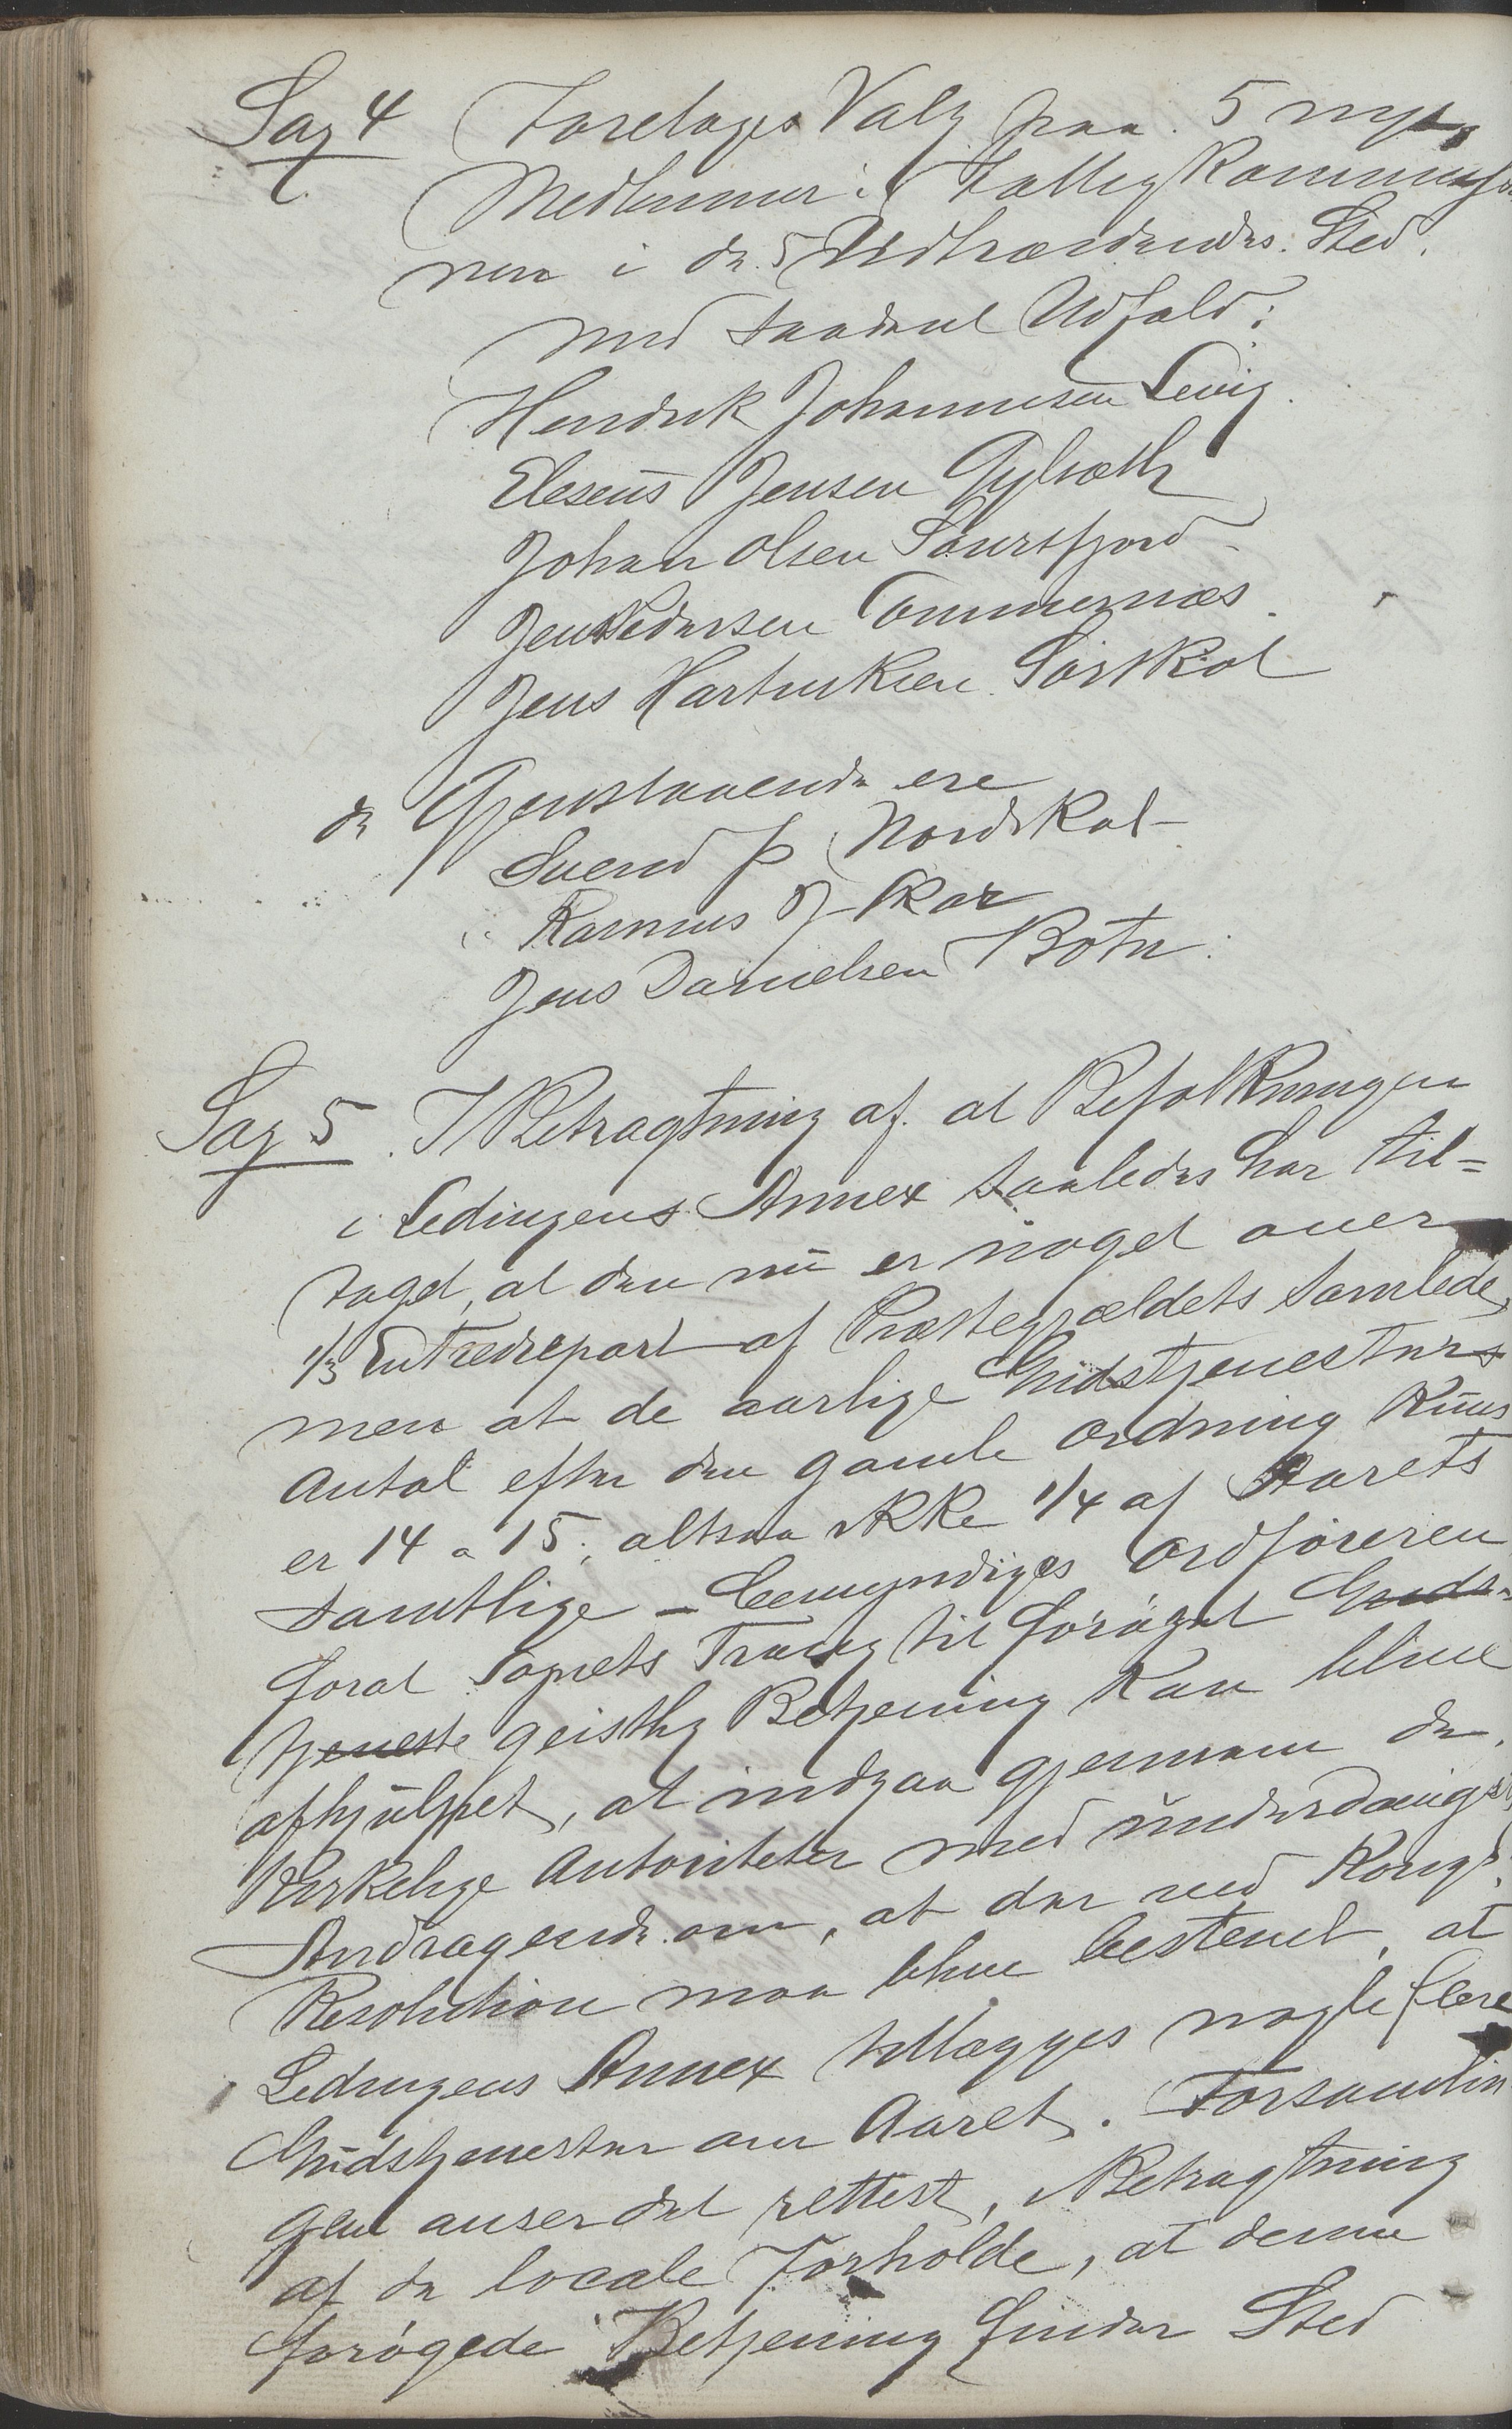 Sag 4 Foretoges Valg paa 5 nye
Medlemmer i Fattigkommissio
nen i de 5 Udtrædendes Sted.
med saadant Udfald:
Hendrik Johannesen Levig.
Eleseus Jensen Gylseth
Johan Olsen Saursfjord
Jens Pedersen Tommernæs.
Jens Hartviksen Sørskot
de Gjenstaaende ere
Svend P Nordskot
Rasmus J Kar
Jens Danielsen Botn.
Sag 5. I Betragtning af at Befolkningen
i Ledingens Annex saaledes har til=
taget, at den nu er noget over
1/3 Entredrepart af Præstegjældets samlede,
men at de aarlige Gudstjenesters
Antal efter den gamle Ordning kuns
er 14 a 15, altsaa ikke 1/4 af Aarets
samtlige – bemyndiges Ordføreren
forat Sognets Trang til forøget Guds-
tjeneste geistlig Betjening kan blive
afhjulpet, at indgaa gjennem de
kirkelige Autoriteter med underdanigst
Andragende om, at der ved Kongl.
Resolution maa blive bestemt, at
Ledingens Annex tillægges nogle flere
Gudstjenester om Aaret. Forsamlin
gen anser det rettest, i Betragtning
af de locale Forholde, at denne
forøgede Betjening finder Sted